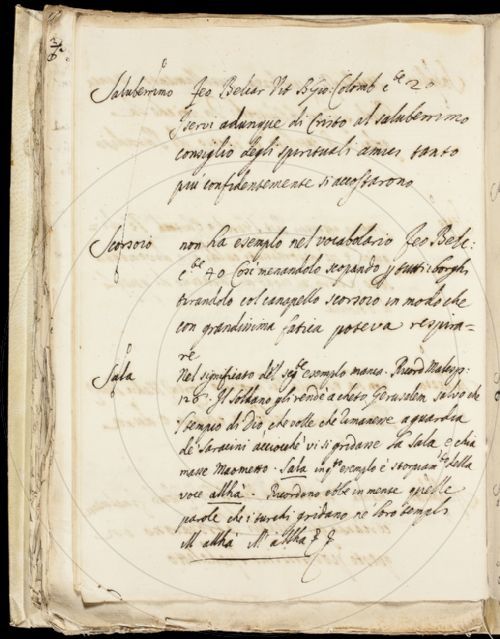 Saluberrimo Feo. Belcar Vit B. Gio: Colomb c.be 20
I servi adunque di Cristo al saluberrimo
consiglio degli spirituali amici tanto
più confidentemente si accostarono
Scorsoio non ha esempio nel vocabolario Feo Belc:
c.be 40 Così menandolo scopando p tutti i borghi
tirandolo col canapello scorsoio in modo che
con grandissima fatica poteva respira-
re
Sala Nel significato del seg.te esempio manca. Ricord Malesp:
Il Soldano gli rende a cheto Gerusalem salvo che
'l tempio di Dio che volle che rimanesse a guardia
de' Saracini acciocchè vi si gridasse la Sala, e chia
masse Maometto. Sala in q.to esempio è storpiam.to della
voce allhà. Ricordano ebbe in mente quelle
parole che i turchi gridano ne' loro templi
allhà allha